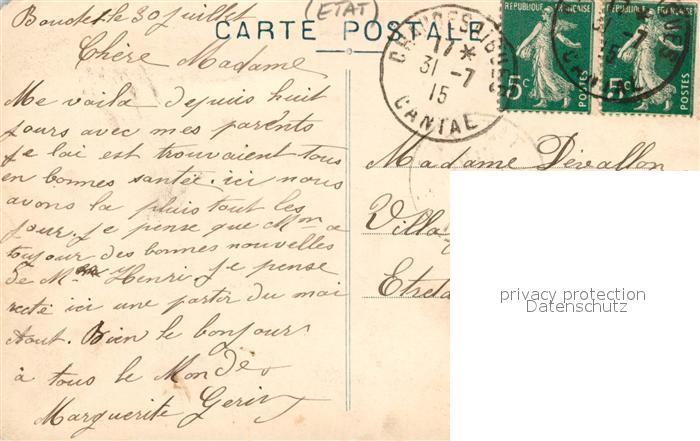 Boudet le 30 juillet
(ETAT)
CARTE POSTALE
Chère Madame
Me voila depuis huit
jours avec mes parents
je lai est trouvaient tous
en bonnes santée. ici nous
avons la pluis tout les
jour. je pense que Mme a
toujour des bonnes nouvelles
de Mr Henri. je pense
resté ici une partir du moi
Aout. Bien le bonjour
à tous le Monde
Marguerite
17 *
31 - 7
15
CANTAL
REPUBLIQUE FRANÇAISE
5c
POSTES
REPUBLIQUE FRANÇAISE
5c
POSTES
31 - 7
15
CANTAL
Madame Dévallon
Villa
Etreta
privacy protection
Datenschutz